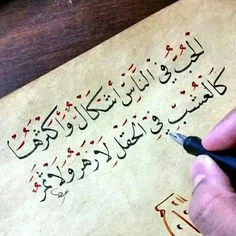 الحُبُّ فِي النَّاسِ أَشْكَالٌ وَأَكْثَرُهَا
كَالعُشْبِ فِي الحَقْلِ لَا زَهْرٌ وَلَا ثَمَرُ